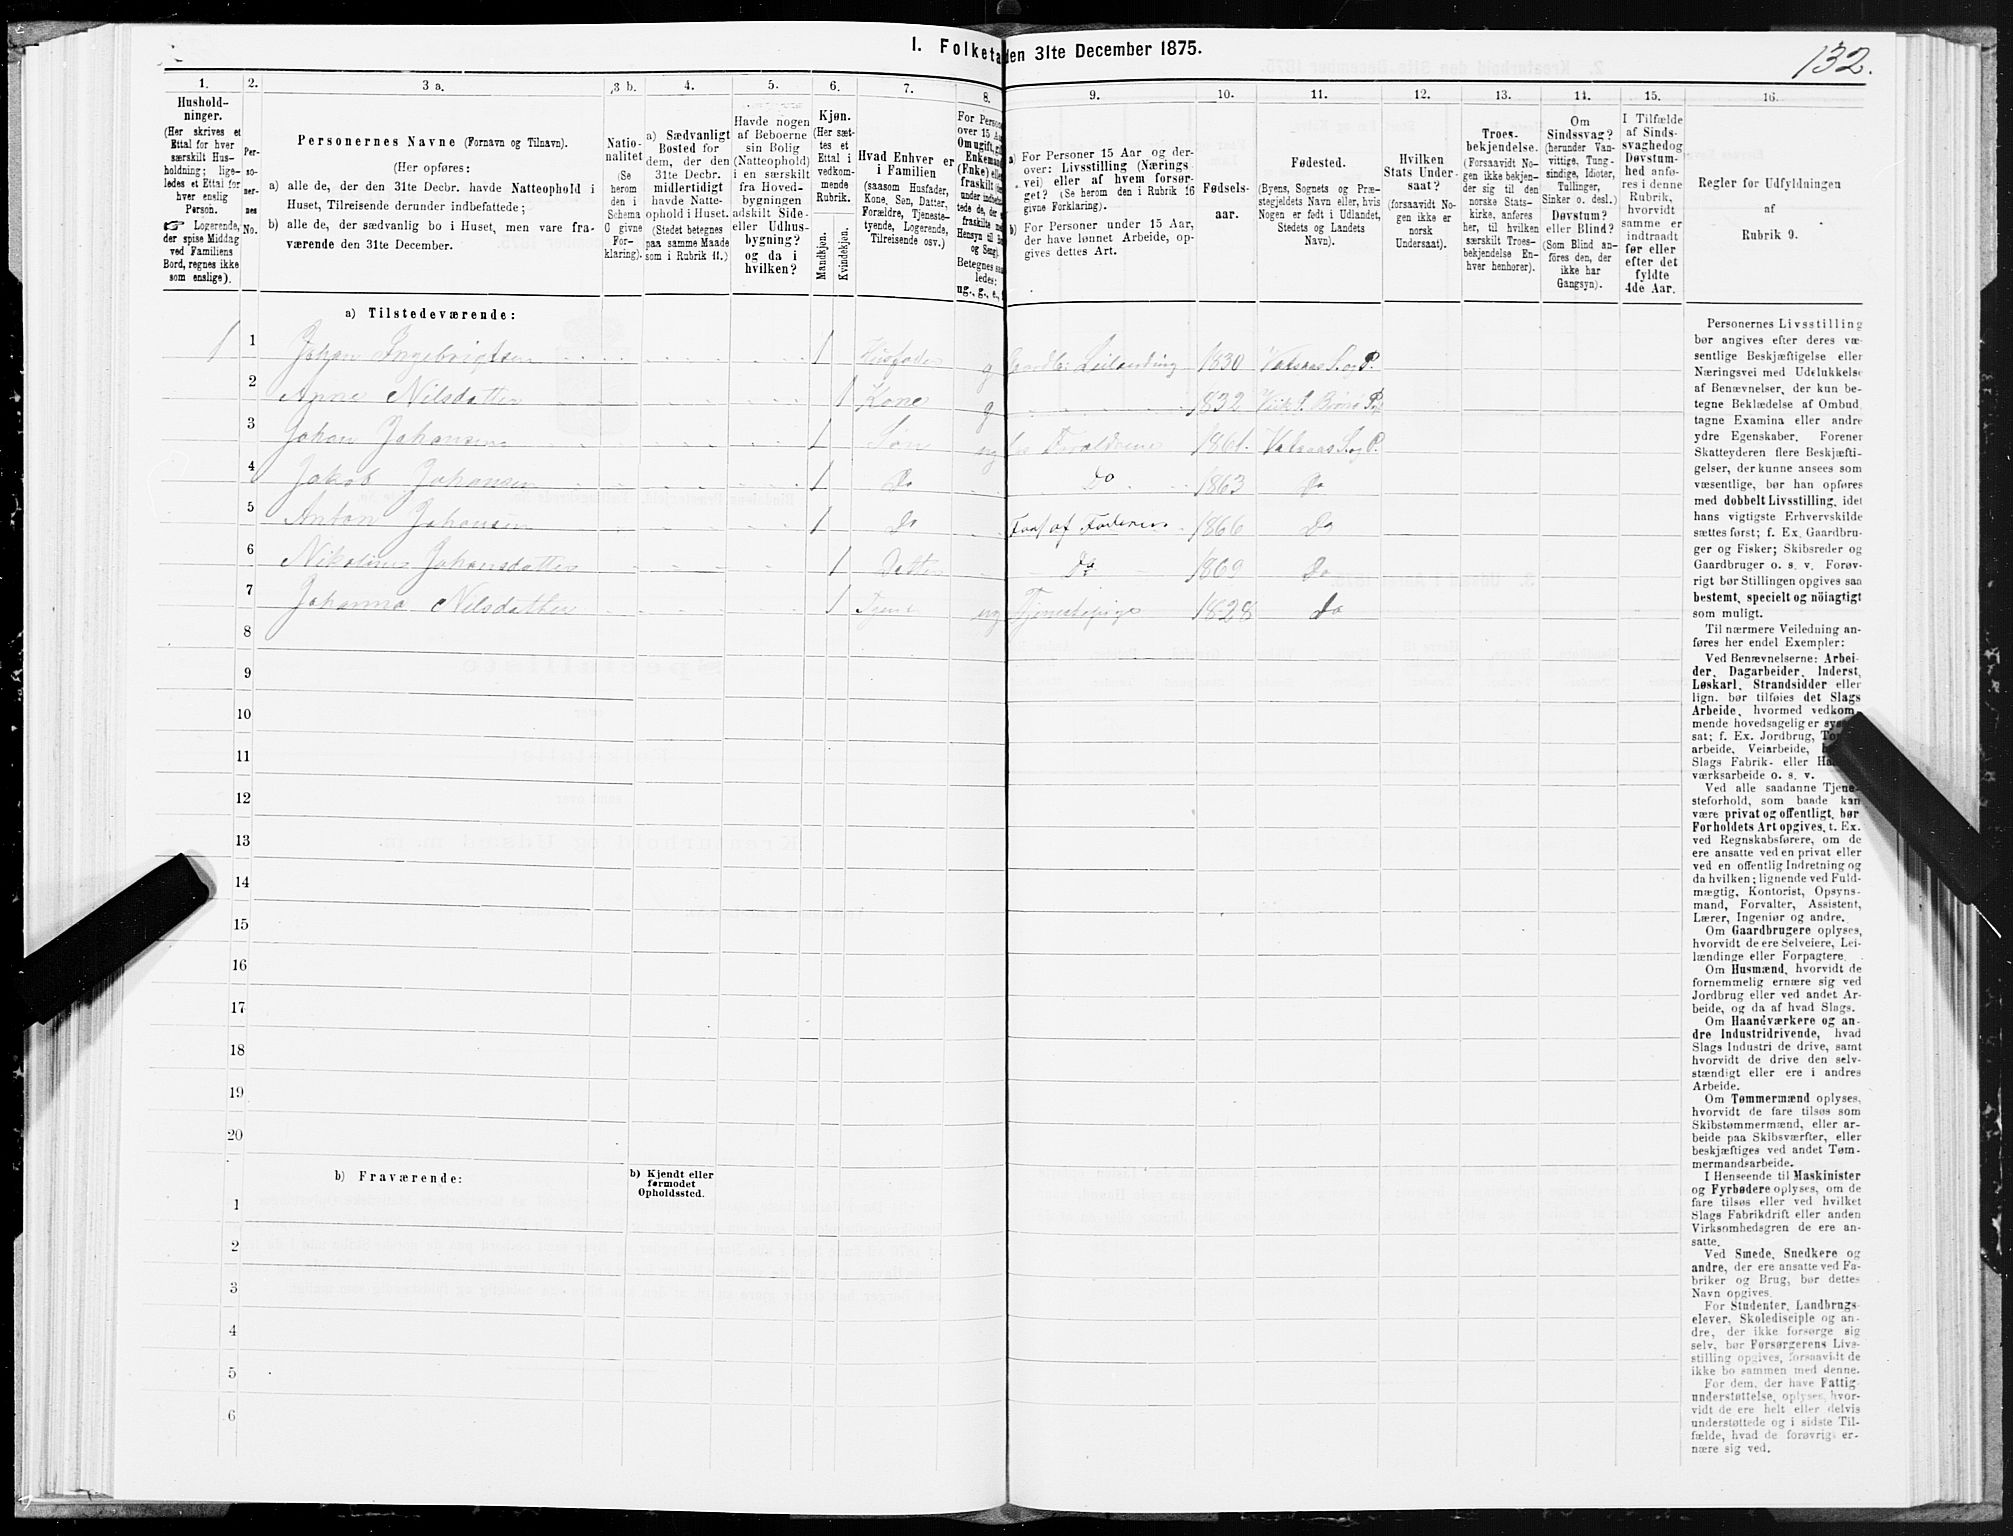 I. Folketa
den 31te December 1875.
132.
1.
2.
3 a.
3 b.
4.
5.
6.
7.
8.
9.
10.
11.
12.
13.
14.
15.
16.
Hushold-
ninger.
(Her skrives et
Ettal for hver
særskilt Hus-
holdning; lige-
ledes et Ettal for
hver enslig
Person.
☞ Logerende,
der spise Middag
ved Familiens
Bord, regnes ikke
som enslige).
Per-
so-
ner-
nes
No.
Personernes Navne (Fornavn og Tilnavn).
(Her opføres:
a) alle de, der den 31te Decbr. havde Natteophold i
Huset, Tilreisende derunder indbefattede;
b) alle de, der sædvanlig bo i Huset, men vare fra-
værende den 31te December.
Natio-
nalitet
(Se
herom
den i
Schema
C givne
For-
klaring).
a) Sædvanligt
Bosted for
dem, der den
31te Decbr.
midlertidigt
havde Natte-
ophold i Huset.
(Stedet betegnes
paa samme Maade
som i Rubrik 11.)
Havde nogen
af Beboerne
sin Bolig
(Natteophold)
i en særskilt
fra Hoved-
bygningen
adskilt Side-
eller Udhus-
bygning?
og da i
hvilken?
Kjøn.
(Her sæt-
tes et
Ettal i
vedkom-
mende
Rubrik.
Mandkjøn.
Kvindekjøn.
Hvad Enhver er
i Familien
(saasom Husfader,
Kone, Søn, Datter,
Forældre, Tjeneste-
tyende, Logerende,
Tilreisende osv.)
For Persone
over 15 Aar
Om ugift, g
Enkemand
(Enke) elle
fraskilt
under indbefat
tede de, der
fraskilte
Hensyn til B
og Seng).
Betegnes saa
ledes:
ug., g., e.,
a) For Personer 15 Aar og der-
over: Livsstilling (Nærings-
vei) eller af hvem forsør-
get? (Se herom den i Rubrik 16
givne Forklaring).
b) For Personer under 15 Aar,
der have lønnet Arbeide, op-
gives dettes Art.
Fødsels-
aar.
Fødested.
(Byens, Sognets og Præ-
stegjeldets Navn eller, hvis
Nogen er født i Udlandet,
Stedets og Landets
Navn).
Hvilken
Stats Under-
saat?
(forsaavidt No-
gen ikke er
norsk
Undersaat).
Troes-
bekjendelse.
(Forsaavidt No-
gen ikke bekjen-
der sig til den
norske Stats-
kirke, anføres
her, til hvilken
særskilt Troes-
bekjendelse En-
hver henhører).
Om
Sindssvag?
(herunder Van-
vittige, Tung-
sindige, Idioter,
Tullinger,
Sinker o. desl.)
Døvstum?
eller Blind?
(Som Blind an-
føres den, der
ikke har
Gangsyn).
I Tilfælde
af Sinds-
svaghed og
Døvstum-
hed anfø-
res i denne
Rubrik,
hvorvidt
samme er
indtraadt
før eller
efter det
fyldte
4de Aar.
Regler for Udfyldningen
af
Rubrik 9.
a) Tilstedeværende:
1 1 Johan Ingebrigtsen 1 Husfader g Gaardbr: Leilending 1830 Vatsaas S. og P.
2 Anne Nilsdatter 1 Kone g 1832
3 Johan Johansen 1 Søn ug Forældrene 1861. S. og P.
4 Jakob Johansen 1 Do Do 1863 Do
5 Anton Johansen 1 Do af Faderen 1866 Do
6 Johansdatter 1 Datter Do 1869 Do
7 Johanna Nilsdatter 1 ug Tjenestepige 1828 Do
8
9
10
11
12
13
14
15
16
17
18
19
20
b) Fraværende:
b) Kjendt eller
formodet
Opholdssted.
1
2
3
4
5
6
Personernes Livsstilling
bør angives efter deres væ-
sentlige Beskjæftigelse eller
Næringsvei med Udelukkelse
af Benævnelser, der kun be-
tegne Beklædelse af Ombud,
tagne Examina eller andre
ydre Egenskaber. Forener
Skatteyderen flere Beskjæfti-
gelser, der kunne ansees som
væsentlige, bør han opføres
med dobbelt Livsstilling, idet
hans vigtigste Erhvervskilde
sættes først; f. Ex. Gaardbru-
ger og Fisker; Skibsreder og
Gaardbruger o. s. v. Forøv-
rigt bør Stillingen opgives saa
bestemt, specielt og nöiagtigt
som muligt.
Til nærmere Veiledning an-
føres her endel Exempler:
Ved Benævnelserne: Arbei-
der, Dagarbeider, Inderst,
Løskarl, Strandsidder eller
lign. bør tilføies det Slags
Arbeide, hvormed vedkom-
mende hovedsagelig er
sat; f. Ex. Jordbrug,
arbeide, Veiarbeide,
Slags Fabrik- eller
værksarbeide o. s. v.
Ved alle saadanne Tjene-
steforhold, som baade kan
være privat og offentligt, bør
Forholdets Art opgives, t. Ex.
ved Regnskabsførere, om de
ere ansatte ved en privat eller
ved en offentlig Indretning og
da hvilken; lignende ved Fuld-
mægtig, Kontorist, Opsyns-
mand, Forvalter, Assistent,
Lærer, Ingeniør og andre.
Om Gaardbrugere oplyses,
hvorvidt de ere Selveiere, Lei-
lændinge eller Forpagtere.
Om Husmænd, hvorvidt de
fornemmelig ernære sig ved
Jordbrug eller ved andet Ar-
beide, og da af hvad Slags.
Om Haandværkere og an-
dre Industridrivende, hvad
Slags Industri de drive, samt
hvorvidt de drive den selv-
stændigt eller ere i andres
Arbeide.
Om Tømmermænd oplyses,
hvorvidt de fare tilsøs som
Skibstømmermænd, eller ar-
beide paa Skibsværfter, eller
beskjæftiges ved andet Tøm-
mermandsarbeide.
I Henseende til Maskinister
og Fyrbødere oplyses, om de
fare tilsøs eller ved hvilket
Slags Fabrikdrift eller anden
Virksomhedsgren de ere an-
satte.
Ved Smede, Snedkere og
andre, der ere ansatte ved Fa-
briker og Brug, bør dettes
Navn opgives.
For Studenter, Landbrugs-
elever, Skoledisciple og an-
dre, der ikke forsørge sig
selv, bør Forsørgerens Livs-
stilling opgives, forsaavidt de
ikke bo sammen med denne.
For dem, der have Fattig-
understøttelse, oplyses, hvor-
vidt de ere helt eller delvis
understøttede og i sidste Til-
fælde, hvad de forøvrigt er-
nære sig ved.